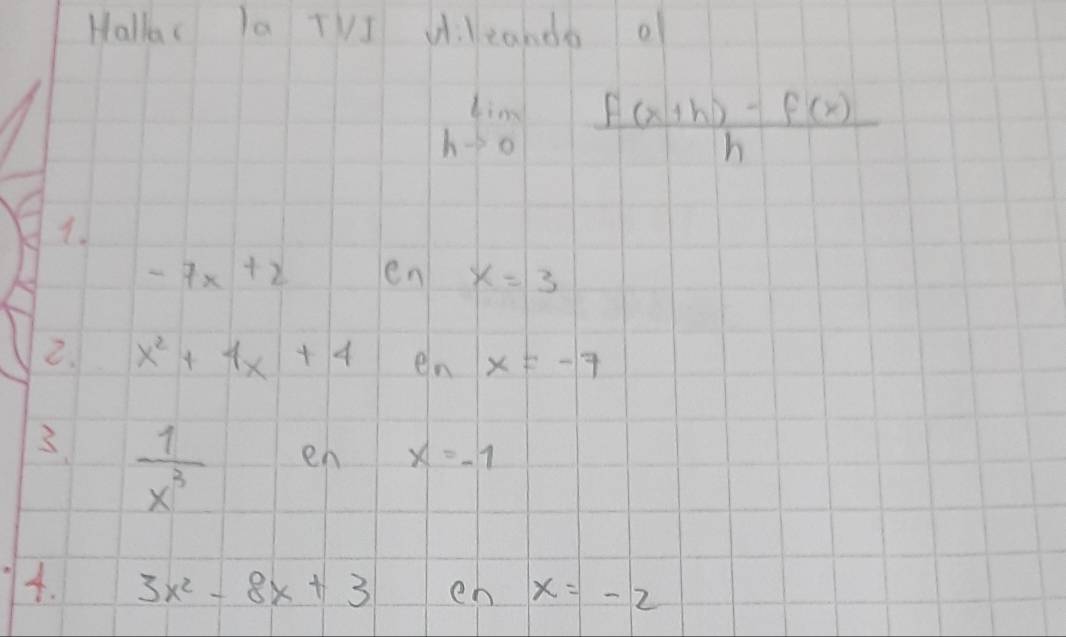 Hallar la TVI utilizando el
lim h→0 f(x+h) - f(x) / h
1. -7x + 2 en x = 3
2. x² + 4x + 4 en x = -7
3. 1/x³ en x = -1
4. 3x² - 8x + 3 en x = -2